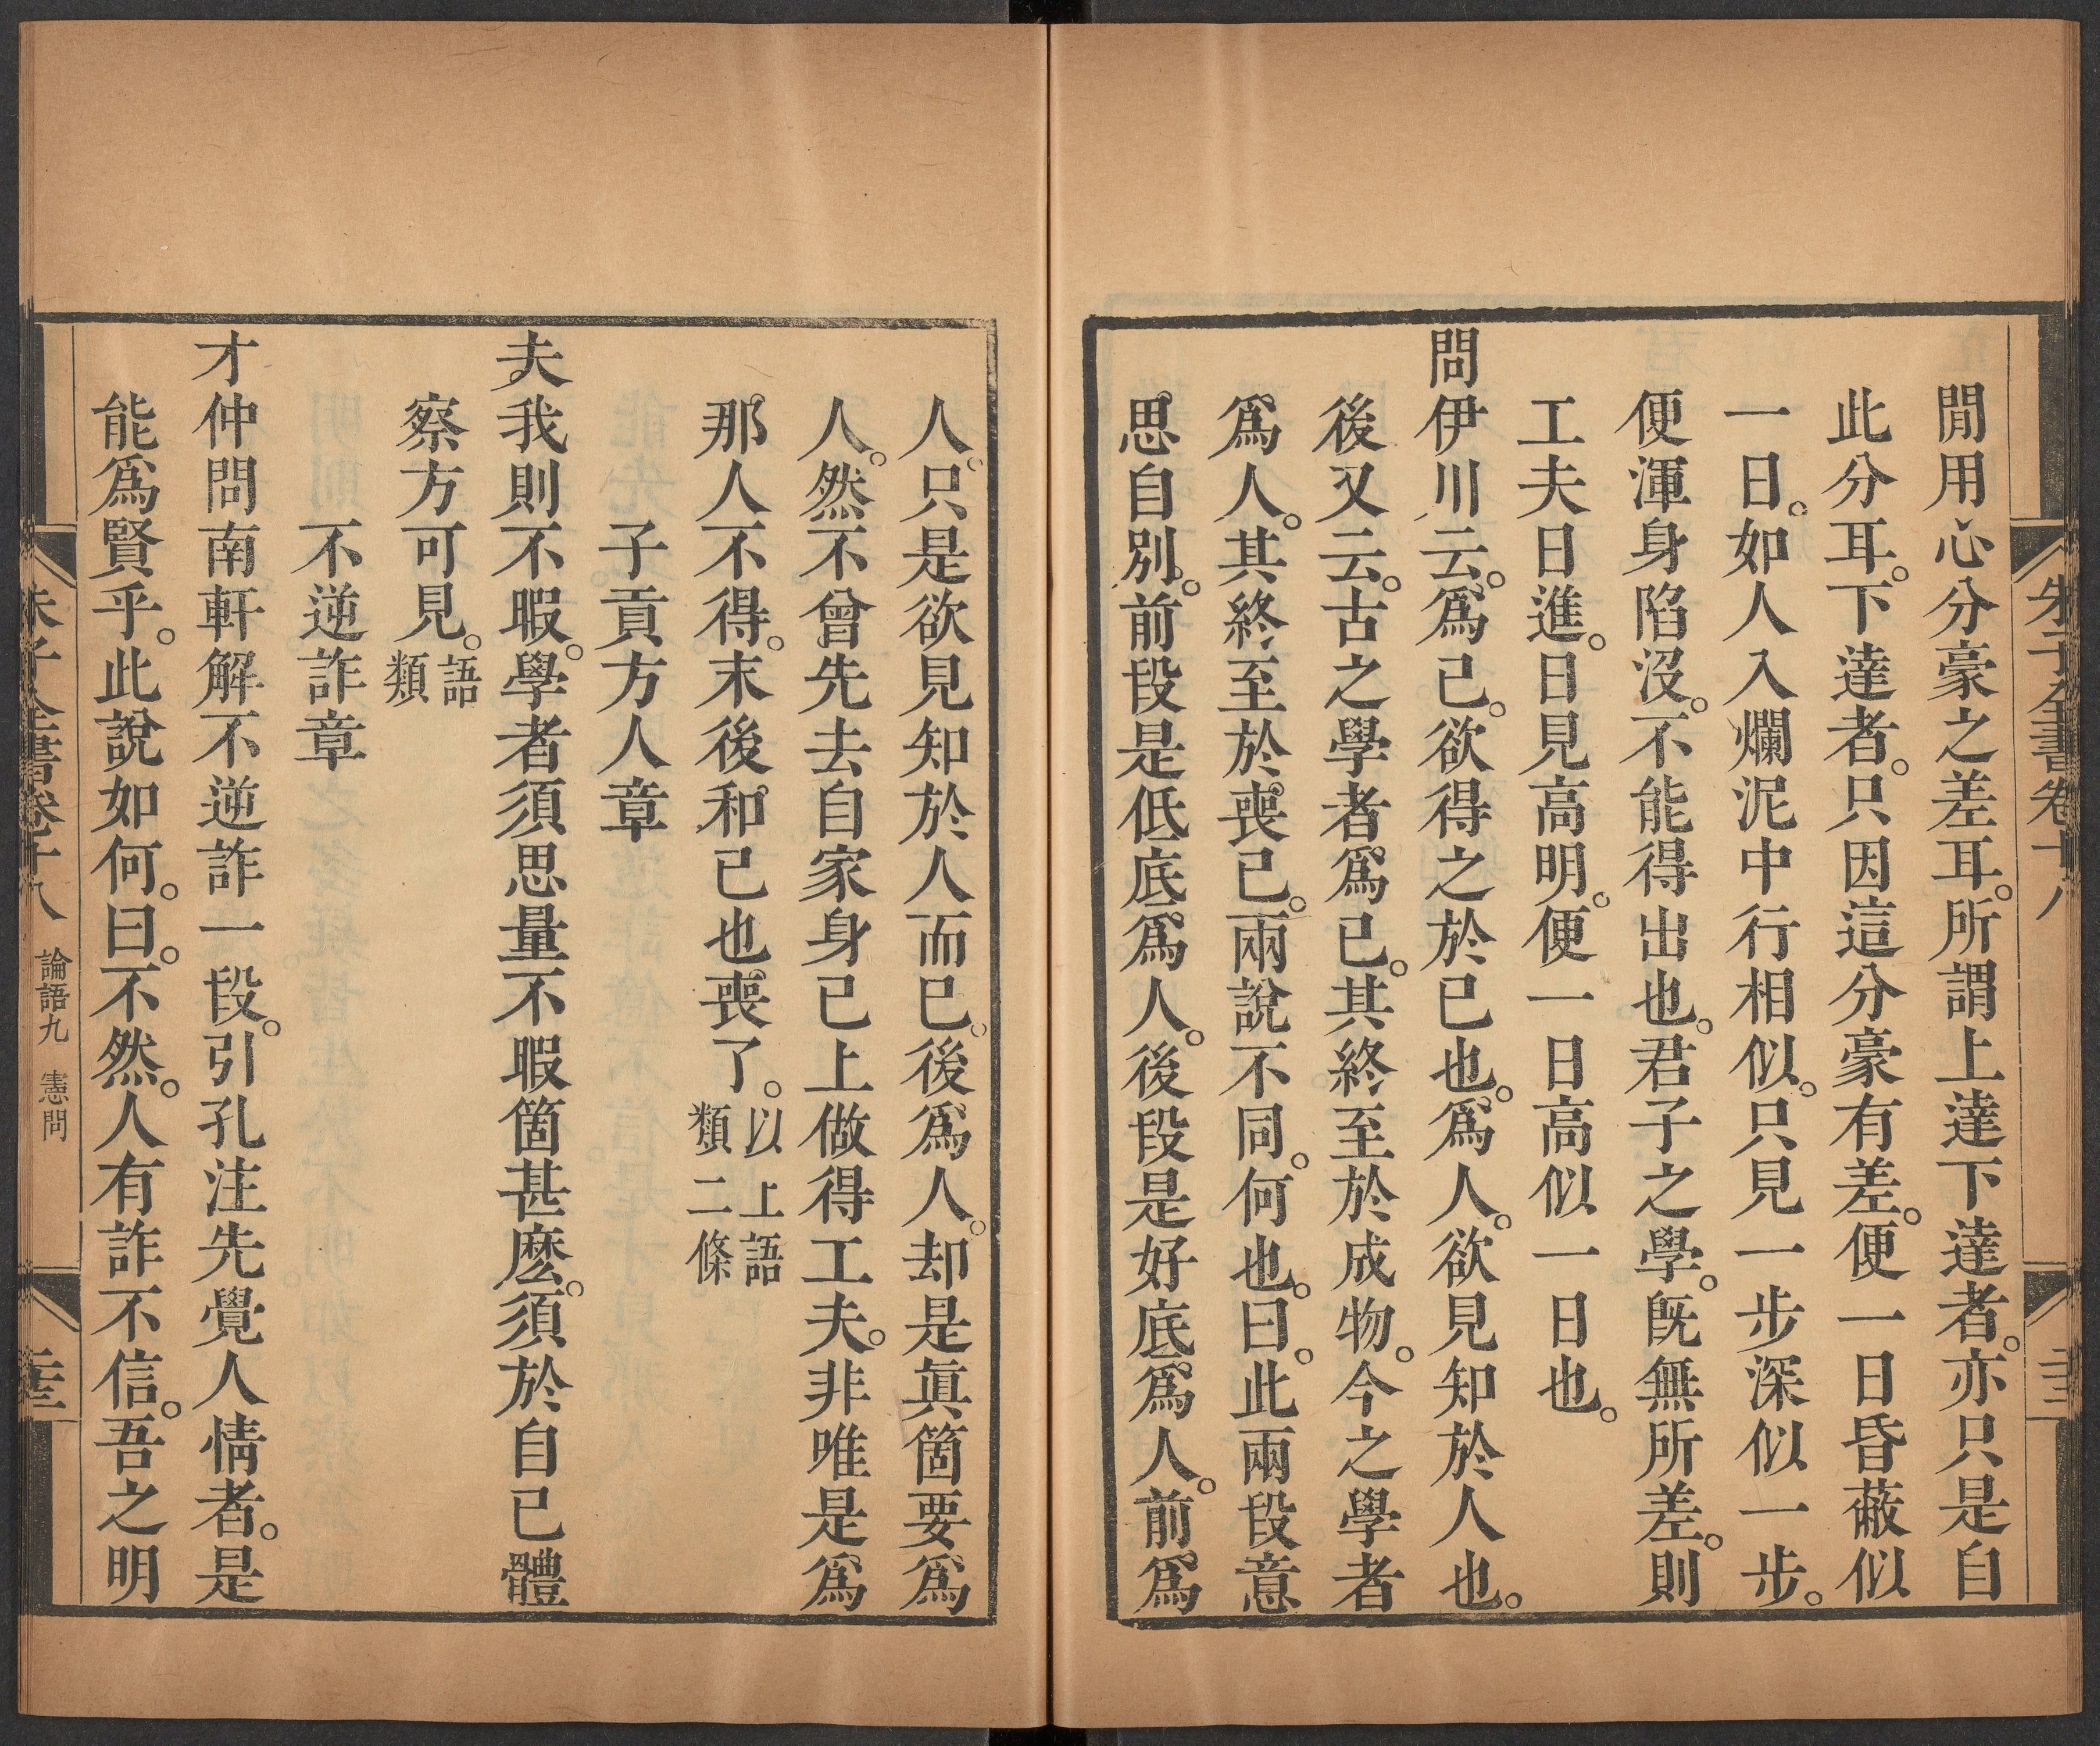 朱子全書卷十八
閒用心分豪之差耳。所謂上達下達者。亦只是自
此分耳。下達者。只因這分豪有差。便一日昏蔽似
一日。如人入爛泥中行相似。只見一步深似一步。
便渾身陷沒。不能得出也。君子之學。旣無所差。則
工夫日進。日見高明。便一日高似一日也。
問伊川云。爲己。欲得之於已也。爲人。欲見知於人也。
後又云。古之學者爲已。其終至於成物。今之學者
爲人。其終至於喪已。兩說不同。何也。曰。此兩段意
思自別。前段是低底爲人。後段是好底爲人。前爲
人。只是欲見知於人而已。後爲人。却是眞箇要爲
人。然不曾先去自家身已上做得工夫。非唯是爲
那人不得。末後和已也喪了。以上語類二條
子貢方人章
夫我則不暇。學者須思量不暇箇甚麼。須於自已體
察方可見。語類
不逆詐章
才仲問南軒解不逆詐一段。引孔注先覺人情者。是
能爲賢乎。此說如何。曰。不然。人有詐不信。吾之明
朱子全書卷十八 論語九 憲問